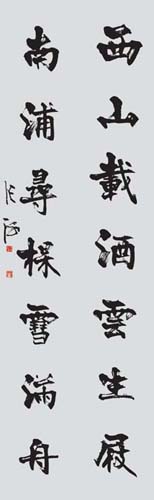 西山載酒雲生屐
南浦尋楳雪滿舟